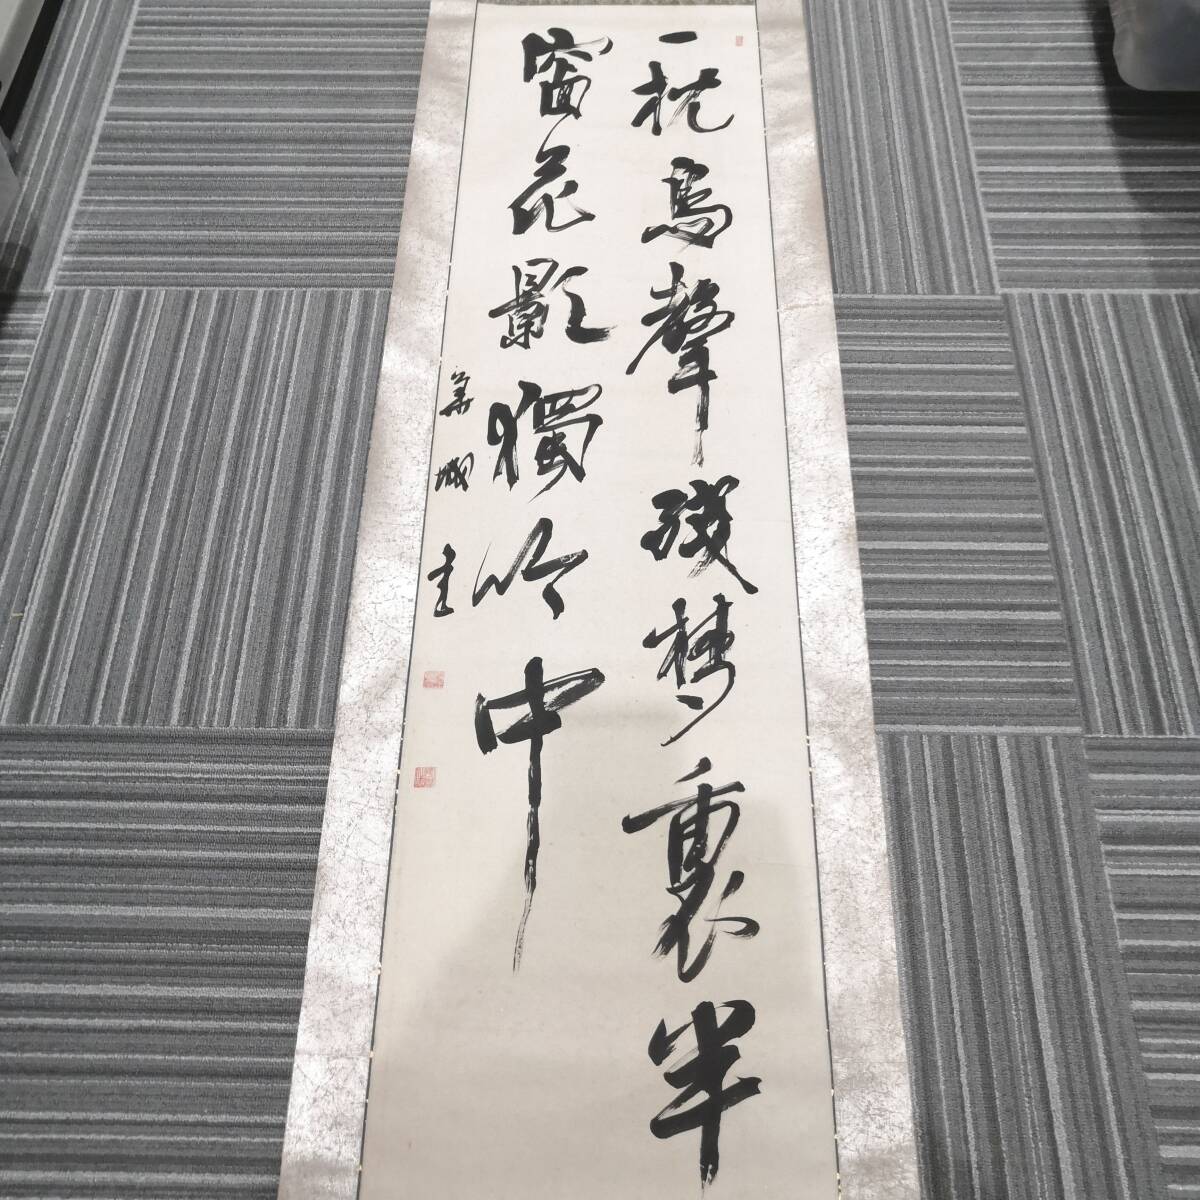 一枕鳥聲殘夢裏半
窗花影獨吟中
城